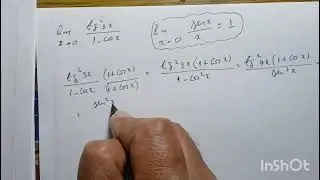 lim x→0 tg²3x / 1 - cosx
lim x→0 senx / x = 1
tg²3x / 1 - cosx (1 + cosx) / (1 + cosx) = tg²3x (1 + cosx) / 1 - cos²x = (1 + cosx) / sen²x
= sen²
InShOt